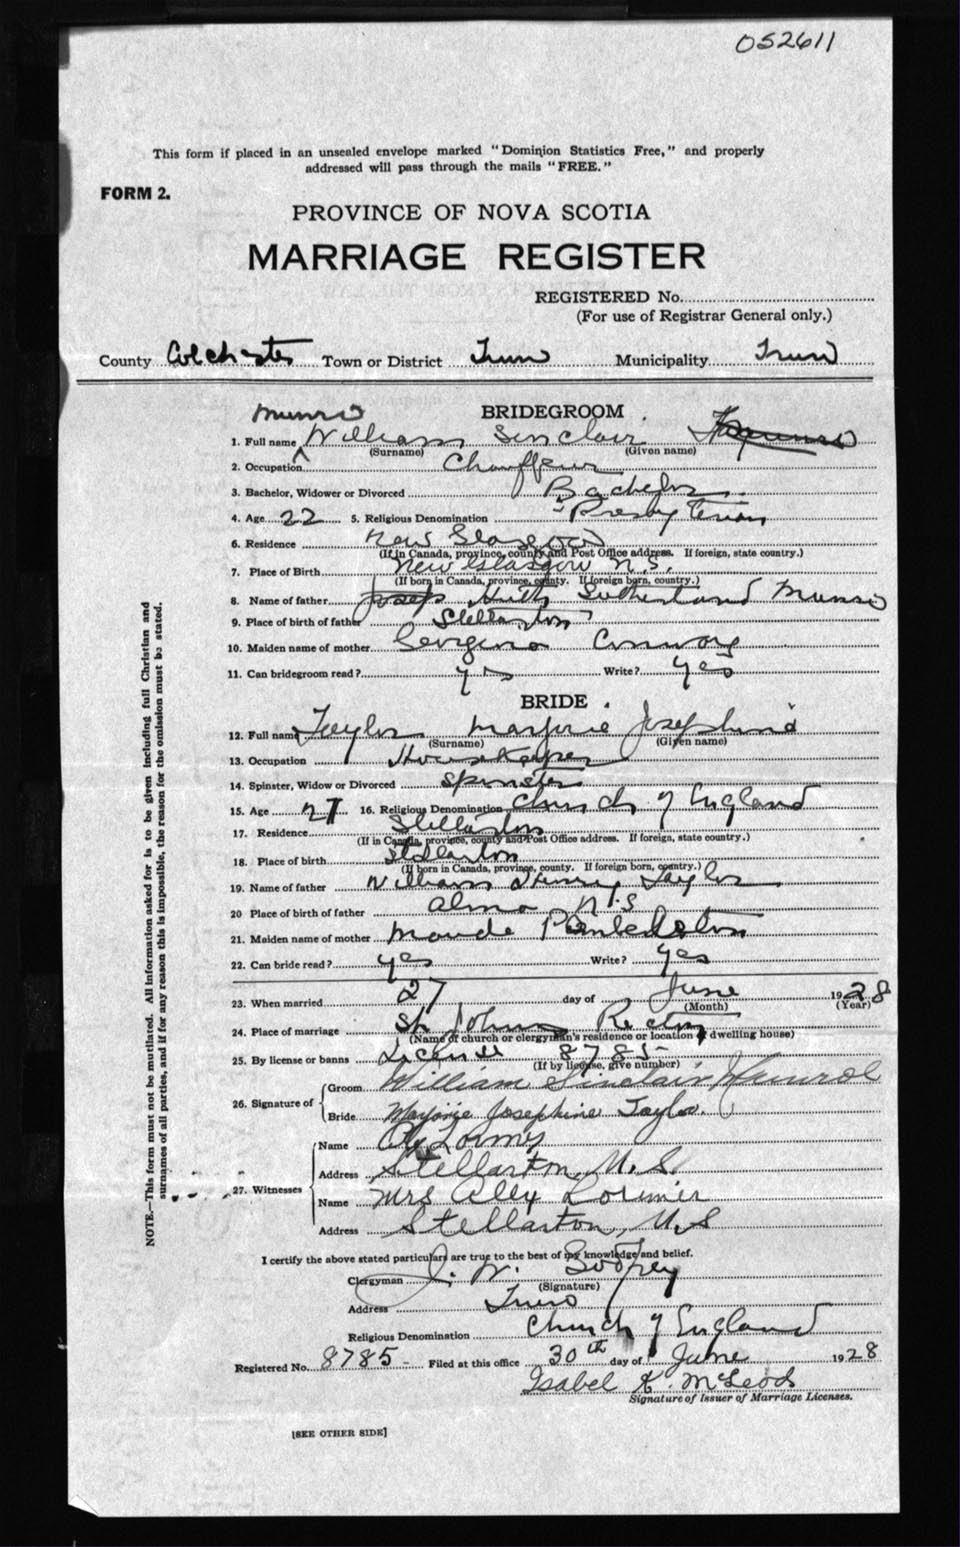 052611
This form if placed in an unsealed envelope marked "Dominion Statistics Free," and properly
addressed will pass through the mails "FREE."
FORM 2.
PROVINCE OF NOVA SCOTIA
MARRIAGE REGISTER
REGISTERED No.
(For use of Registrar General only.)
County Colchester Town or District Truro Municipality Truro
Munro BRIDEGROOM
1. Full name William Sinclair
(Surname) (Given name)
2. Occupation Chauffeur
3. Bachelor, Widower or Divorced Bachelor
4. Age 22 5. Religious Denomination Presbyterian
6. Residence New Glasgow
(If in Canada, province, county and Post Office address. If foreign, state country.)
7. Place of Birth New Glasgow N.S.
(If born in Canada, province, county. If foreign born, country.)
8. Name of father Joseph Sutherland Munro
9. Place of birth of father Stellarton
10. Maiden name of mother Georgina Conway
11. Can bridegroom read? yes Write? yes
BRIDE
12. Full name Taylor Marjorie Josephine
(Surname) (Given name)
13. Occupation Housekeeper
14. Spinster, Widow or Divorced Spinster
15. Age 27 16. Religious Denomination Church of England
17. Residence Stellarton
(If in Canada, province, county and Post Office address. If foreign, state country.)
18. Place of birth Stellarton
(If born in Canada, province, county. If foreign born, country.)
19. Name of father William Henry Taylor
20 Place of birth of father Alma N.S
21. Maiden name of mother Maude
22. Can bride read? yes Write? yes
23. When married 27 day of June 1928
(Month) (Year)
24. Place of marriage St Johns Rectory
(Name of church or clergyman's residence or location of dwelling house)
25. By license or banns License 8785
(If by license, give number)
26. Signature of
Groom William Sinclair Munroe
Bride Marjorie Josephine Taylor.
27. Witnesses
Name
Address Stellarton, N.S.
Name Mrs Alex Lorimer
Address Stellarton, N.S
I certify the above stated particulars are true to the best of my knowledge and belief.
Clergyman J. W. Godfrey
(Signature)
Address Truro
Religious Denomination Church of England
Registered No. 8785 - Filed at this office 30th day of June 1928
Isabel K. McLeod
Signature of Issuer of Marriage Licenses.
[SEE OTHER SIDE]
NOTE.—This form must not be mutilated. All information asked for is to be given including full Christian and
surnames of all parties, and if for any reason this is impossible, the reason for the omission must be stated.